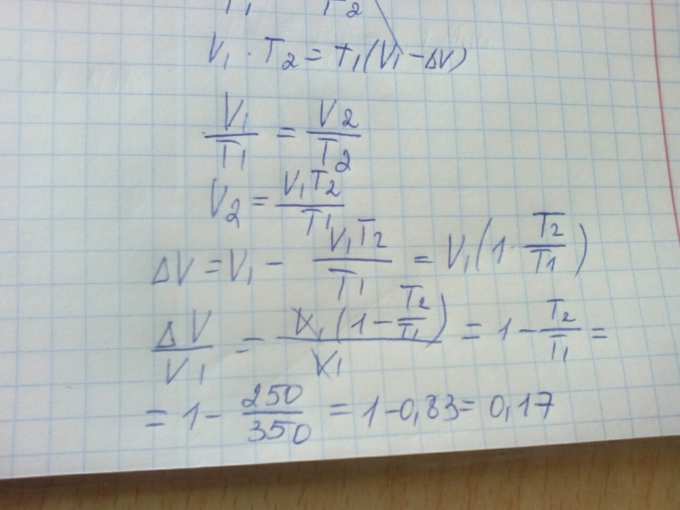 T₁ T₂
V₁ · T₂ = T₁(V₁ - ΔV)
V₁/T₁ = V₂/T₂
V₂ = V₁T₂/T₁
ΔV = V₁ - V₁T₂/T₁ = V₁(1 - T₂/T₁)
ΔV/V₁ = V₁(1 - T₂/T₁)/V₁ = 1 - T₂/T₁ =
= 1 - 250/350 = 1 - 0,83 = 0,17